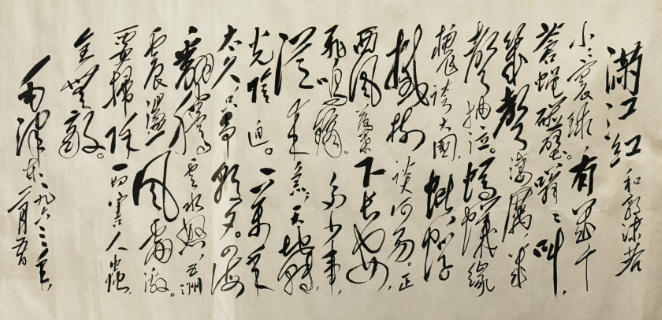 满江红 和郭沫若
小小寰球，有几个
苍蝇碰壁。嗡嗡叫，
几声凄厉，几
声抽泣。蚂蚁缘
槐夸大国，蚍蜉
撼树谈何易。正
西风落叶下长安，
飞鸣镝。多少事，
从来急；天地转，
光阴迫。一万年
太久，只争朝夕。四海
翻腾云水怒，五洲
震荡风雷激。
要扫除一切害人虫，
全无敌。
毛泽东 一九六三年